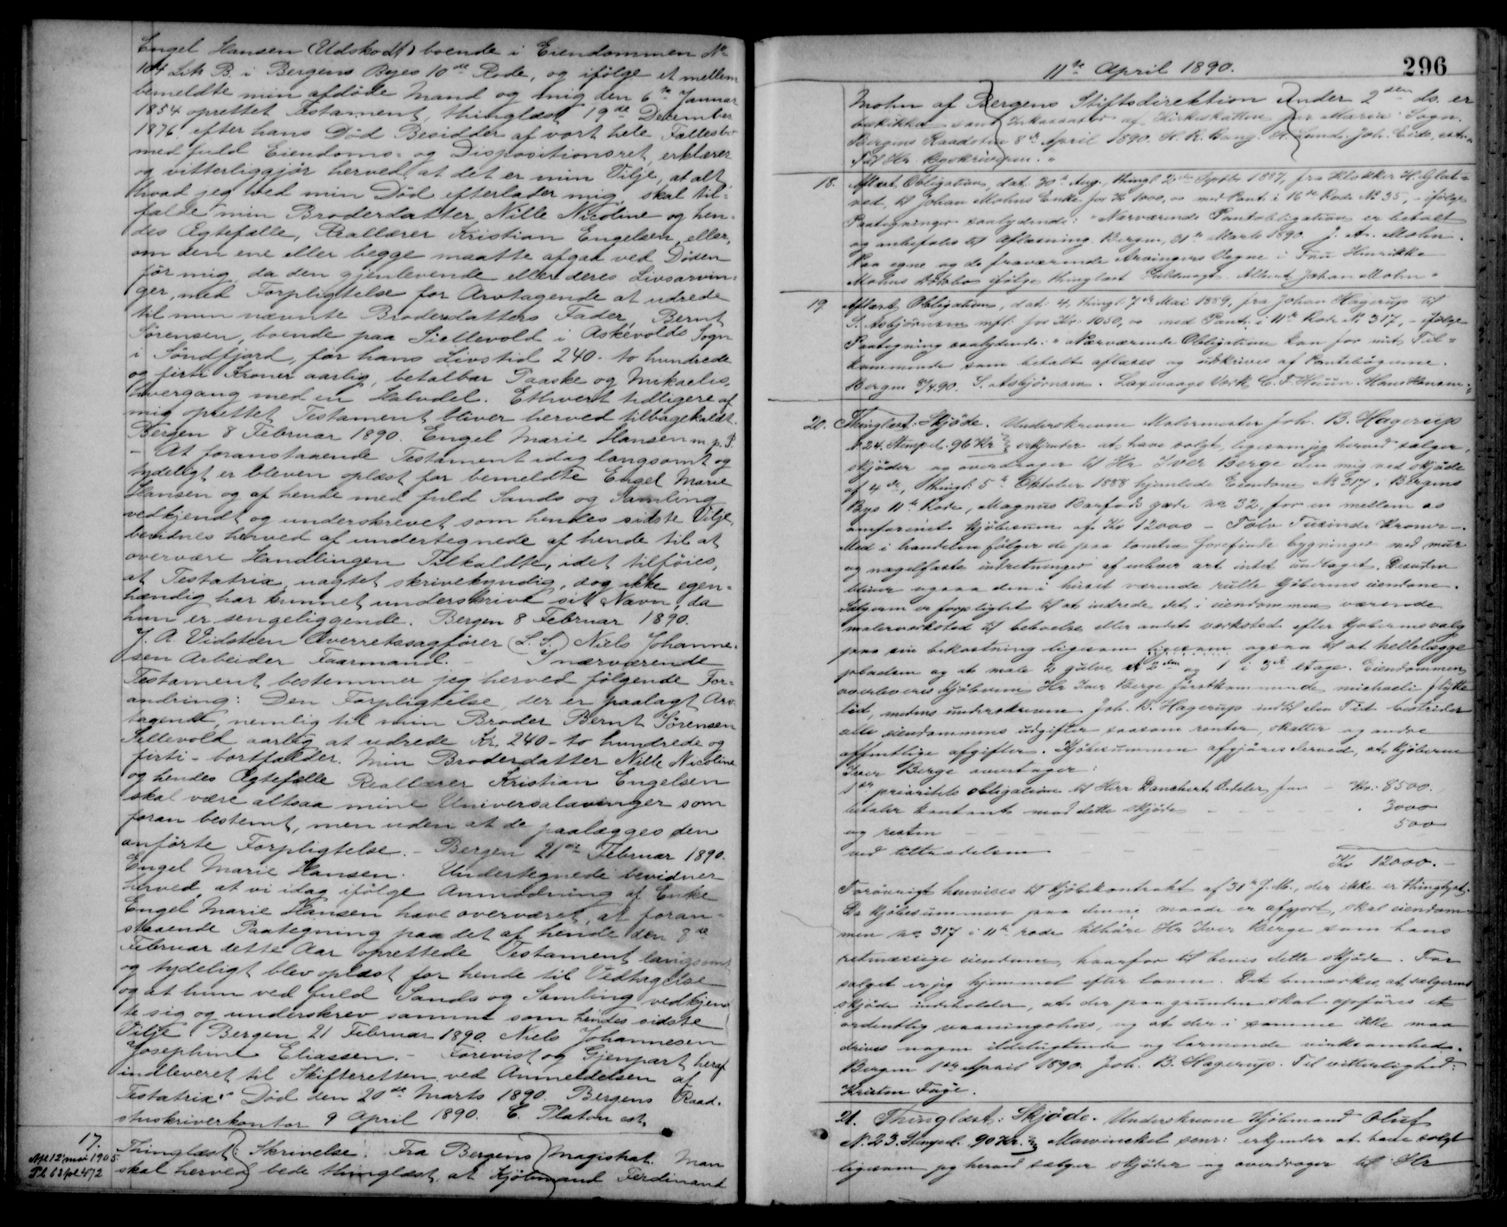 Engel Hansen (Udskodt) boende i Eiendommen No
104 Litr B. i Bergens Byes 10de Rode, og ifölge et mellem
bemeldte min afdöde Mand og mig den 6te Januar
1854 oprettet Testament, thinglæst 19de December
1876 efter hans Död Besidder af vort hele Fællesbo
med fuld Eiendoms- og Dispositionsret, erklærer
og vitterliggjör herved, at det er min Vilje, at alt
hvad jeg ved min Död efterlader mig, skal til-
falde min Broderdatter Nille Nicoline og hen-
des Ægtefælle, Reallærer Kristian Engelsen, eller,
om den ene eller begge maatte afgaa ved Döden
för mig, da den gjenlevende eller deres Livsarvin-
ger, med Forpligtelse for Arvtagende at udrede
til min nævnte Broderdatters Fader, Bernt
Sörensen, boende paa Sellevold i Askevolds Sogn
i Söndfjord, for hans Livstid 240 - to hundrede
og firti Kroner aarlig, betalbar Paaske og Mikaelis,
hvergang med en Halvdel. Ethvert tidligere af
mig oprettet Testament bliver herved tilbagekaldt.
Bergen 8 Februar 1890. Engel Marie Hansen m. p. P.
- At foranstaaende Testament idag langsomt og
tydeligt er bleven oplæst for bemeldte Engel Marie
Hansen og af hende med fuld Sands og Samling
vedkjendt og underskrevet som hendes sidste Vilje,
bevidnes herved af undertegnede af hende til at
overvære Handlingen Tilkaldte, idet tilföies,
at Testatrix, uagtet skrivekyndig, dog ikke egen-
hændig har kunnet underskrive sit Navn, da
hun er sengeliggende. Bergen 8 Februar 1890.
J. A. Vidsteen Overretssagförer (L. S.) Niels Johanne-
sen Arbeider Faarmand. - I nærværende
Testament bestemmer jeg herved fölgende For-
andring: Den Forpligtelse, der er paalagt Arv-
tagende, nemlig til min Broder Bernt Sörensen
Sellevold aarlig at udrede Kr. 240 - to hundrede og
firti - bortfalder. Min Broderdatter Nille Nicoline
og hendes Ægtefælle Reallærer Kristian Engelsen
skal være altsaa mine Universalarvinger som
foran bestemt, men uden at de paalægges den
anförte Forpligtelse. - Bergen 21de Februar 1890.
Engel Marie Hansen. Undertegnede bevidner
herved, at vi idag ifölge Anmodning af Enke
Engel Marie Hansen have overværet, at foran-
staaende Paategning paa det af hende den 8de
Februar dette Aar oprettede Testament langsomt
og tydeligt blev oplæst for hende til Vedtagelse
og at hun ved fuld Sands og Samling vedkjend
te sig og underskrev samme som hendes sidste
Vilje. Bergen 21 Februar 1890. Niels Johannesen
Josephine Eliassen. - Forevist og Gjenpart heraf
indleveret til Skifteretten ved Anmeldelsen af
Testatrix's Död den 20de Marts 1890. Bergens Raad-
stueskriverkontor 9 April 1890. C. Platou cst.
17.
Thinglæst Skrivelse. Fra Bergens Magistrat. Man
skal herved bede thinglæst, at Kjöbmand Ferdinand
11te April 1890.
296
Mohn af Bergens Stiftsdirektion under 2den ds. er
beskikket som Inkassator af Kirkeskatten for Maria Sogn.
Bergens Raadstue 8de April 1890.
Til Hr. Byskriveren."
18. Aflæst Obligation, dat. 30te Aug., thingl. 1887, fra Klokker
ved, til Johan Mohns Enke for Kr 1000,00 med Pant i 16de Rode No 35, - ifölge
Paategninger saalydende: "Nærværende Pantobligation er betalt
og anbefales til Aflæsning. Bergen, 31te Marts 1890. J. A. Mohn.
Paa egne og de fraværende Arvingers Vegne i Fru Henrikke
Mohns Dödsbo ifölge thinglæst Fuldmagt. Albert Johan Mohn."
19. Aflæst Obligation, dat. 4, thingl. 7de Mai 1889, fra Johan Hagerup til
S. Asbjörnsen mfl. for Kr. 1050,00 med Pant i 11te Rode No 317, - ifölge
Paategning saalydende: "Nærværende Obligation kan for vit Ved-
kommende som betalt aflæses og udskrives af Pantebögerne.
Bergen 8/4 90. S. Asbjörnsen. Laxevaags Værk. Hans Hansen."
20. Thinglæst Skjöde. Underskrevne Malermester Joh. B. Hagerup
N. 24. Stempel. 96 Kr erkjender at have solgt, ligesom jeg herved sælger,
skjöder og overdrager til Hr Iver Berge den mig ved skjöde
af 4de, thingl. 5te Oktober 1888 hjemlede Eiendom No 317 i Bergens
Byes 11te Rode, Magnus Barfods gade no 32, for en mellem os
omforenet Kjöbesum af Kr 12000 - Tolv Tusinde Kroner -.
Med i handelen fölger de paa tomten forefinde bygninger med mur
og nagelfaste indretninger af enhver art intet undtaget. Desuden
bliver ogsaa den i huset værende rulle Kjöberens eiendom.
Sælgeren er forpligtet til at indrede det i eiendommen værende
malerværksted til beboelse eller andet værksted efter kjöberens valg
paa sin bekostning ligesom ogsaa til at hellelægge
pladsen og at male 2 gulve i 2den og 1 i 3die etage. Eiendommen
overleveres kjöberen Hr Iver Berge förstkommende michaeli flytte
tid, medens underskrevne Joh. B. Hagerup indtil den Tid bestrider
alle eiendommens udgifter saasom renter, skatter og andre
offentlige afgifter. Kjöbesummen afgjöres derved, at Kjöberen
Iver Berge overtager:
1ste prioritets obligation til Herr Danckert Odder, for - Kr. 8500.
betaler kontant mod dette skjöde - - - . 3000
og resten - - - - - 500
ved tiltrædelsen
Kr 12000. -
Forövrigt henvises til kjöbekontrakt af 31te f. M., der ikke er thinglyst.
Da kjöbesummen paa denne maade er afgjort, skal eiendom-
men no 317 i 11te rode tilhöre Hr Iver Berge som hans
retmæssige eiendom, hvorfor til bevis dette skjöde. For
salget er jeg hjemmel efter loven. Det bemærkes, at sælgerens
skjöde indeholder, at der paa grunden skal opföres et
ordentlig vaaningshus, og at der i samme ikke maa
drives nogen ildelugtende og larmende virksomhed.
Bergen 1ste April 1890. Joh. B. Hagerup. Til vitterlighed:
Kristen Fage.
21. Thinglæst Skjöde. Underskrevne Kjöbmand Oluf
N. 23. Stempel. 90 Kr. Mowinckel senr: erkjender at have solgt
ligesom jeg herved sælger skjöder og overdrager til Hr